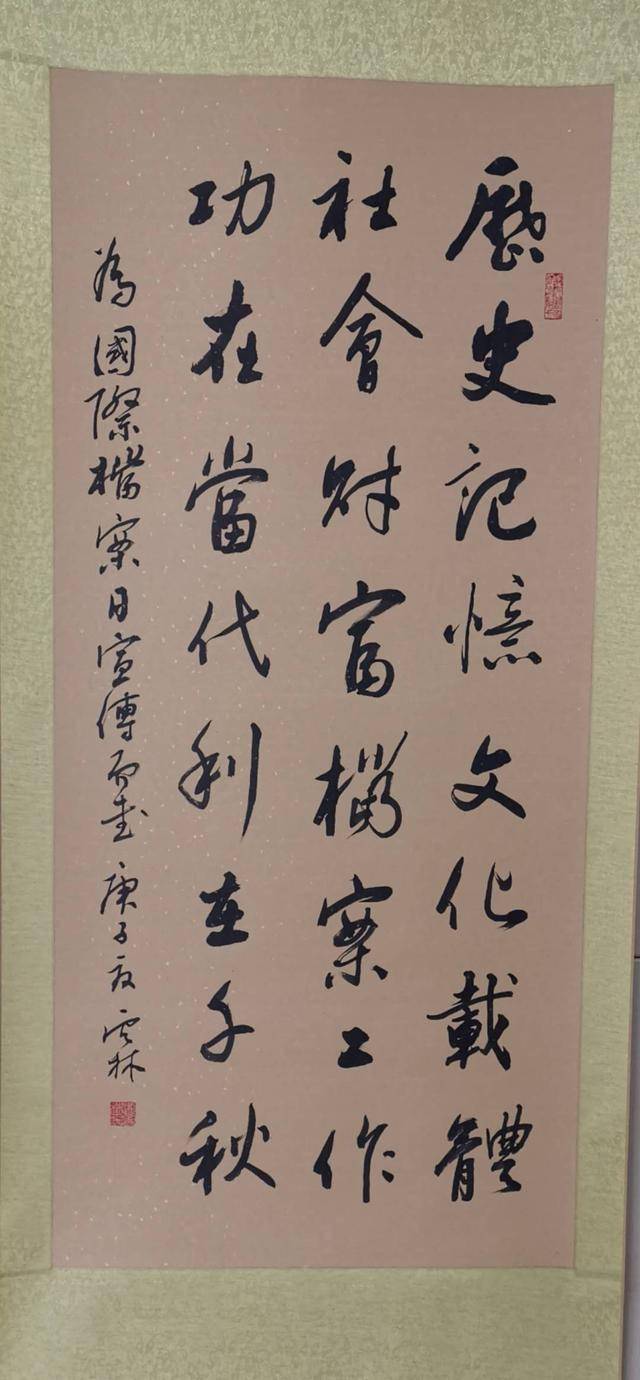 歷史記憶文化載體
社會財富檔案工作
功在當代利在千秋
為國際檔案日宣傳而書庚子夏雲林